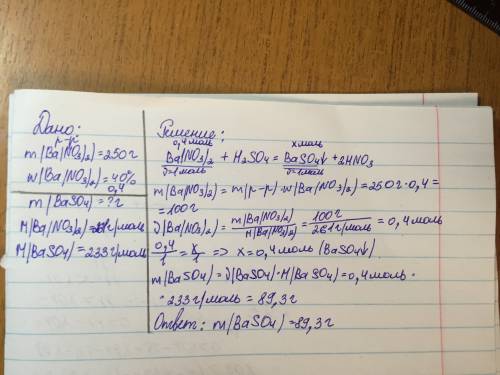 Дано:
р-р
m(Ba(NO3)2)=250г
w(Ba(NO3)2)=40%
0,4
m(BaSO4)=?г
M(Ba(NO3)2)=261г/моль
M(BaSO4)=233г/моль
Решение:
0,4моль xмоль
Ba(NO3)2 + H2SO4 = BaSO4↓ + 2HNO3
ν=1моль ν=1моль
m(Ba(NO3)2)=m(р-р)·w(Ba(NO3)2)=250г·0,4=
=100г
ν(Ba(NO3)2)=m(Ba(NO3)2)/M(Ba(NO3)2)=100г/261г/моль=0,4моль
0,4/1=x/1 => x=0,4моль (BaSO4↓)
m(BaSO4)=ν(BaSO4)·M(BaSO4)=0,4моль·
·233г/моль=89,3г
Ответ: m(BaSO4)=89,3г